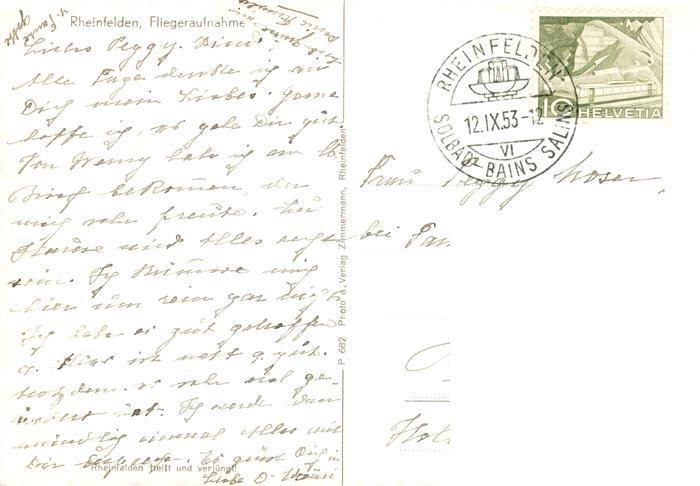 Rheinfelden, Fliegeraufnahme
Liebes Peggy-Kind,
Alle Tage denke ich an
Dich mein Liebes. Gerne
hoffe ich, es gehe Dir gut.
Von habe ich am
Brief bekommen, der
mich sehr freute.
Hause wird Alles recht
sein. Ich kümmere mich
hier um rein gar nichts.
Ich habe es gut getroffen
Hier ist nett u. gut.
trotzdem es sehr viel ge-
ändert hat. Ich werde dann
mündlich einmal Alles mit
Dir besprechen. Es grüsst Dich in
Liebe D.
Rheinfelden heilt und verjüngt!
P 682 Photo u. Verlag Zimmermann, Rheinfelden
RHEINFELDEN
12.IX.53-12
VI
SOLBAD-BAINS SALINS
10 HELVETIA
Frau Peggy Moser
bei Fam